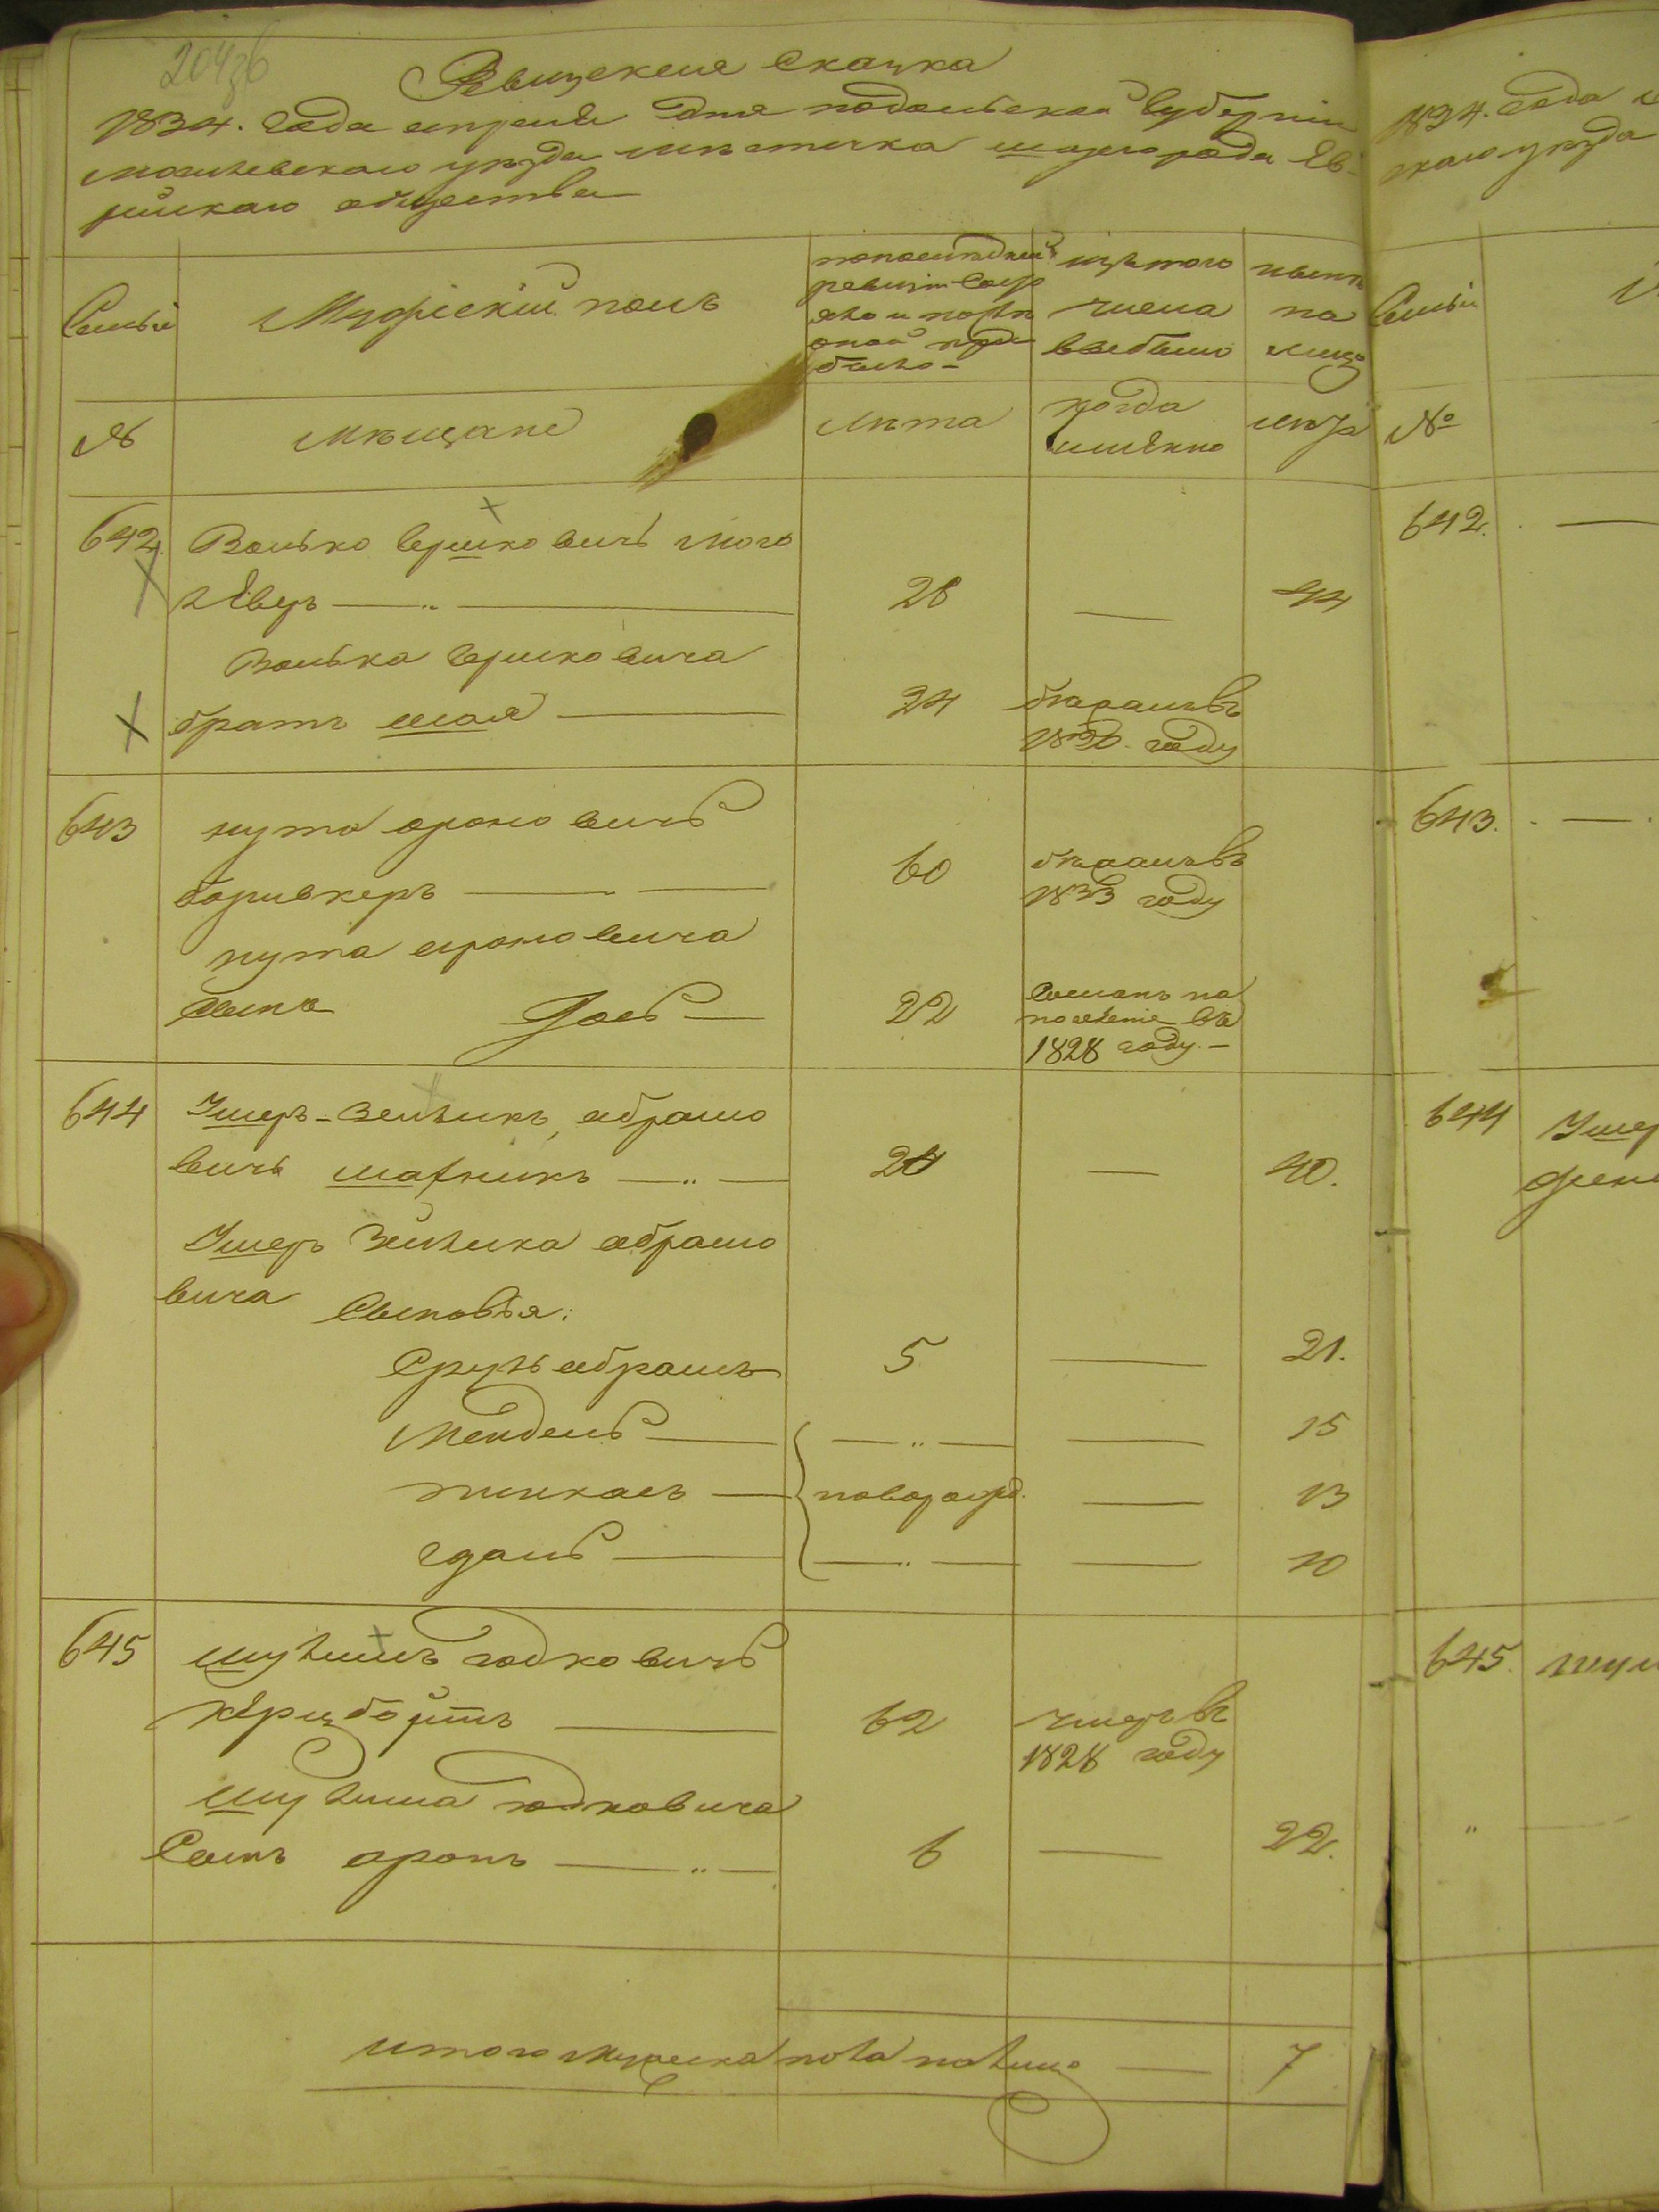 Ревизская Сказка
1834. года апреля дня подольской Губернии
могилевского уезда местечка шаргорода Ев-
рейскаго общества
Семьи
Мужеский полъ
по последней ревизии состояло и после оной прибыло
изъ того числа выбыло
ныне на лицо
Семьи
№
мещане
лета
когда именно
лета
№
642
Волько Гершковичъ мого
левер 28 — 44
Волька Гершковича
братъ шая — 24 бежалъ въ
1830. году
643
нута ароновичъ
боривкеръ — 60 бежалъ въ
1833 году
нута ароновича
сынъ Іосъ — 22 сосланъ на
поселение въ
1828 году. —
644
Ушеръ-Зелигъ абрамо
вичъ 24 — 40.
Ушеръ Зелига абрамо
вича Сыновья:
Сруль абрамъ 5 — 21.
Мендель — „ — 15
— новорожд. — 13
— „ — 10
645
шулимъ годковичъ
62 умеръ въ
1828 году
шулима годковича
Сынъ аронъ — „ — 6 — 22.
итого мужеска пола на лицо — 7
1834. года
скаго уезда
642. —
643. —
644 Ушер
645.